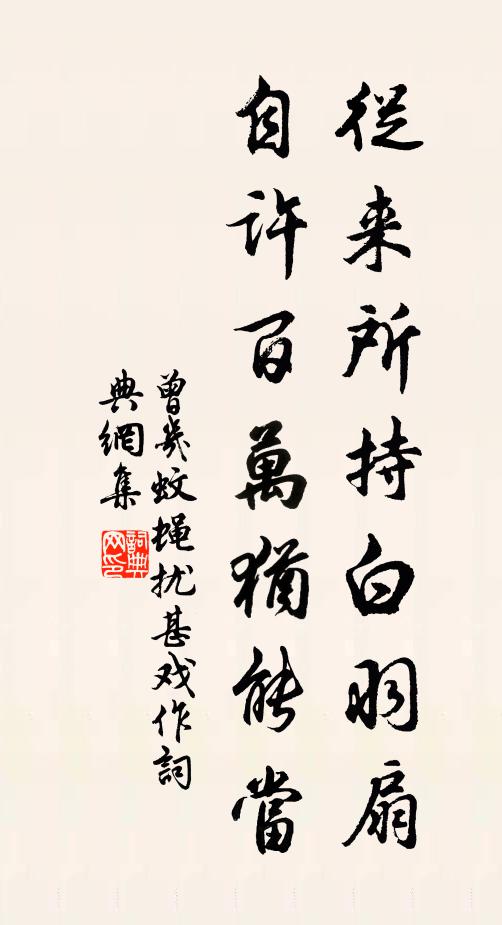 從来所持白羽扇
自许百萬猶能當
曾幾蚊蝇扰甚戏作詞
典網集
詞典网印